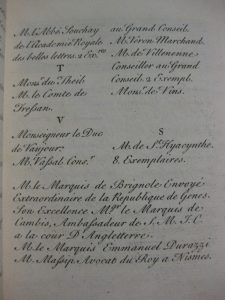 M. l'Abbé Souchay
de l'Academie Royale
des belles lettres. 2 Ex.res
T
Mons.r du Theil
M. le Comte de
Tressan.
V
Monseigneur le Duc
de Vaujour.
M. Vassal Cons.r
au Grand Conseil.
M. Veron Marchand.
M. de Villeneuve
Conseiller au Grand
Conseil. 2 Exempl.
Mons.r de Vins.
S
M. de S.t Hyacynthe.
8. Exemplaires.
M. le Marquis de Brignole Envoyé
Extraordinaire de la Republique de Genes.
Son Excellence M.gr le Marquis de
Cambis, Ambassadeur de S. M. T. C.
a la cour D'Angleterre.
M. le Marquis Emmanuel Durazzi
M. Massip Avocat du Roy a Nismes.